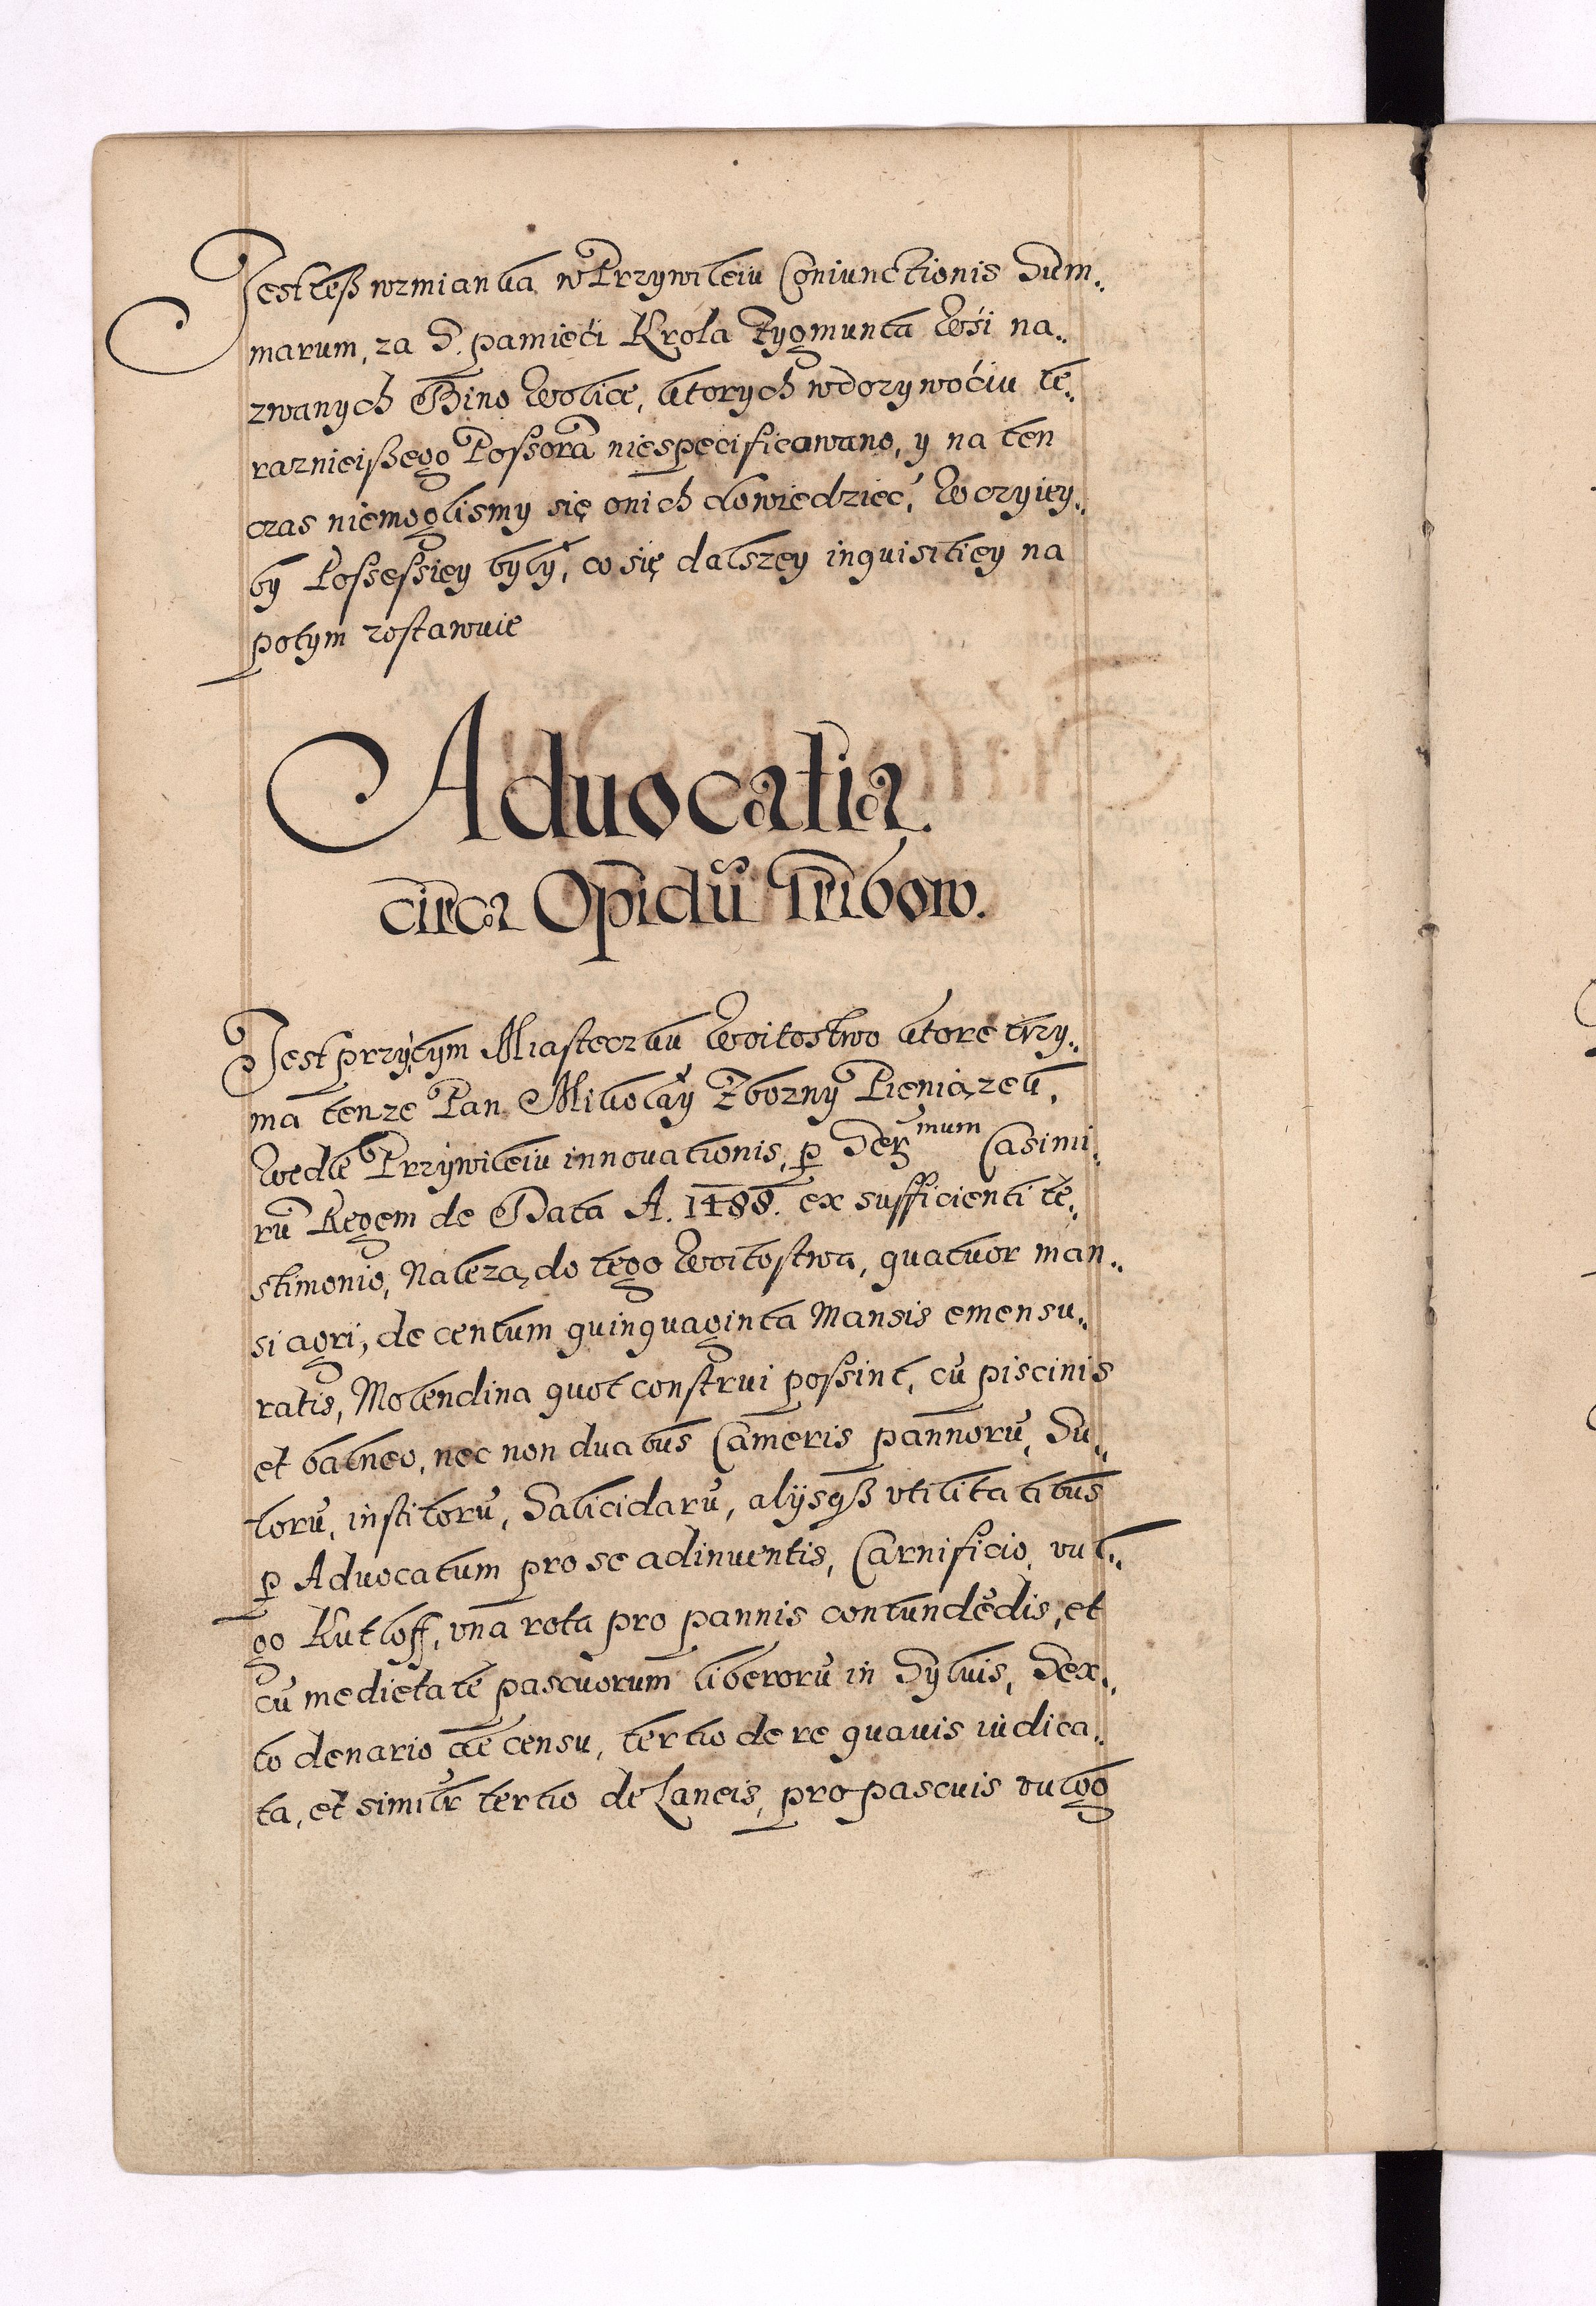 Jest tesz wzmianka w Przywileiu Coniunctionis Sum„
marum, za S. pamieći Krola Zygmunta Wśi na„
zwanych Bino Wolice, ktorych w dozywoćiu te„
raznieißego Poßora niespecificawano, y na ten
czas niemoglismy się onich dowiedzieć, W czyiey„
by Poßeßiey byly, co się dalszey inquisitiey na
potym zostawuie
Advocatia
circa Opidū Tribow.
Jest przytym Miasteczku Woitostwo ktore trzy„
ma tenze Pan Mikolay Zborny Pieniązek,
Wedle Przywileiu innovationis, p Sermum Casimi„
rū Regem de Data A. 1488. ex sufficienti te„
stimonio, Nalezą do tego Woitostwa, quatuor man„
si agri, de centum quinquaginta Mansis emensu„
ratis, Molendina quot construi poßint, cū piscinis
et balneo, nec non duabus Cameris pannorū, Su„
torū, institorū, Salicidarū, alijsqß utilitatibus
p Advocatum pro se adinventis, Carnificio, vul„
go Kutloff, vna rota pro pannis contundēdis, et
cū medietate pascuorum liberorū in Sylvis, Sex„
to denario de censu, tertio de re quavis iudica„
ta, et similr tertio de Laneis, pro pascuis vulgo